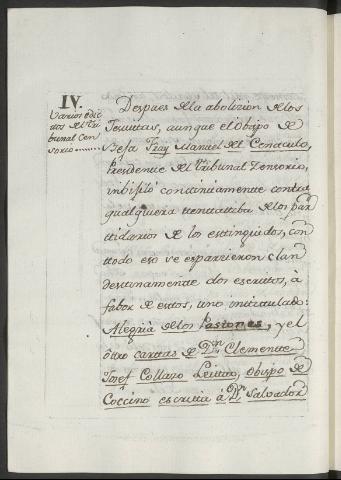 IV.
Varios edic
tos del Tri
bunal Cen
sorio
Despues de la abolizion de los
Jesuitas, aunque el Obispo de
Besa Fray Manuel del Cenaculo,
Presidente del Tribunal Zensorio,
inbijiló continuamente contra
qualquiera tentatiba de los par
tidarios de los estinguidos, con
todo eso se esparrieron clan
destinamente dos escritos, à
fabor de estos, uno intitulado:
Alegria de los Pastores, y el
òtro carttas de Dn. Clemente
Josef Collazo Leittao, Obispo de
Coccino escritta à Dn. Salvador